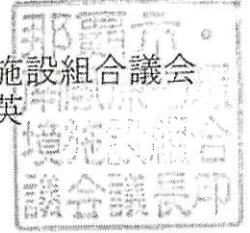 施設組合議会
英
那覇市・
境施設組合
議会議長印